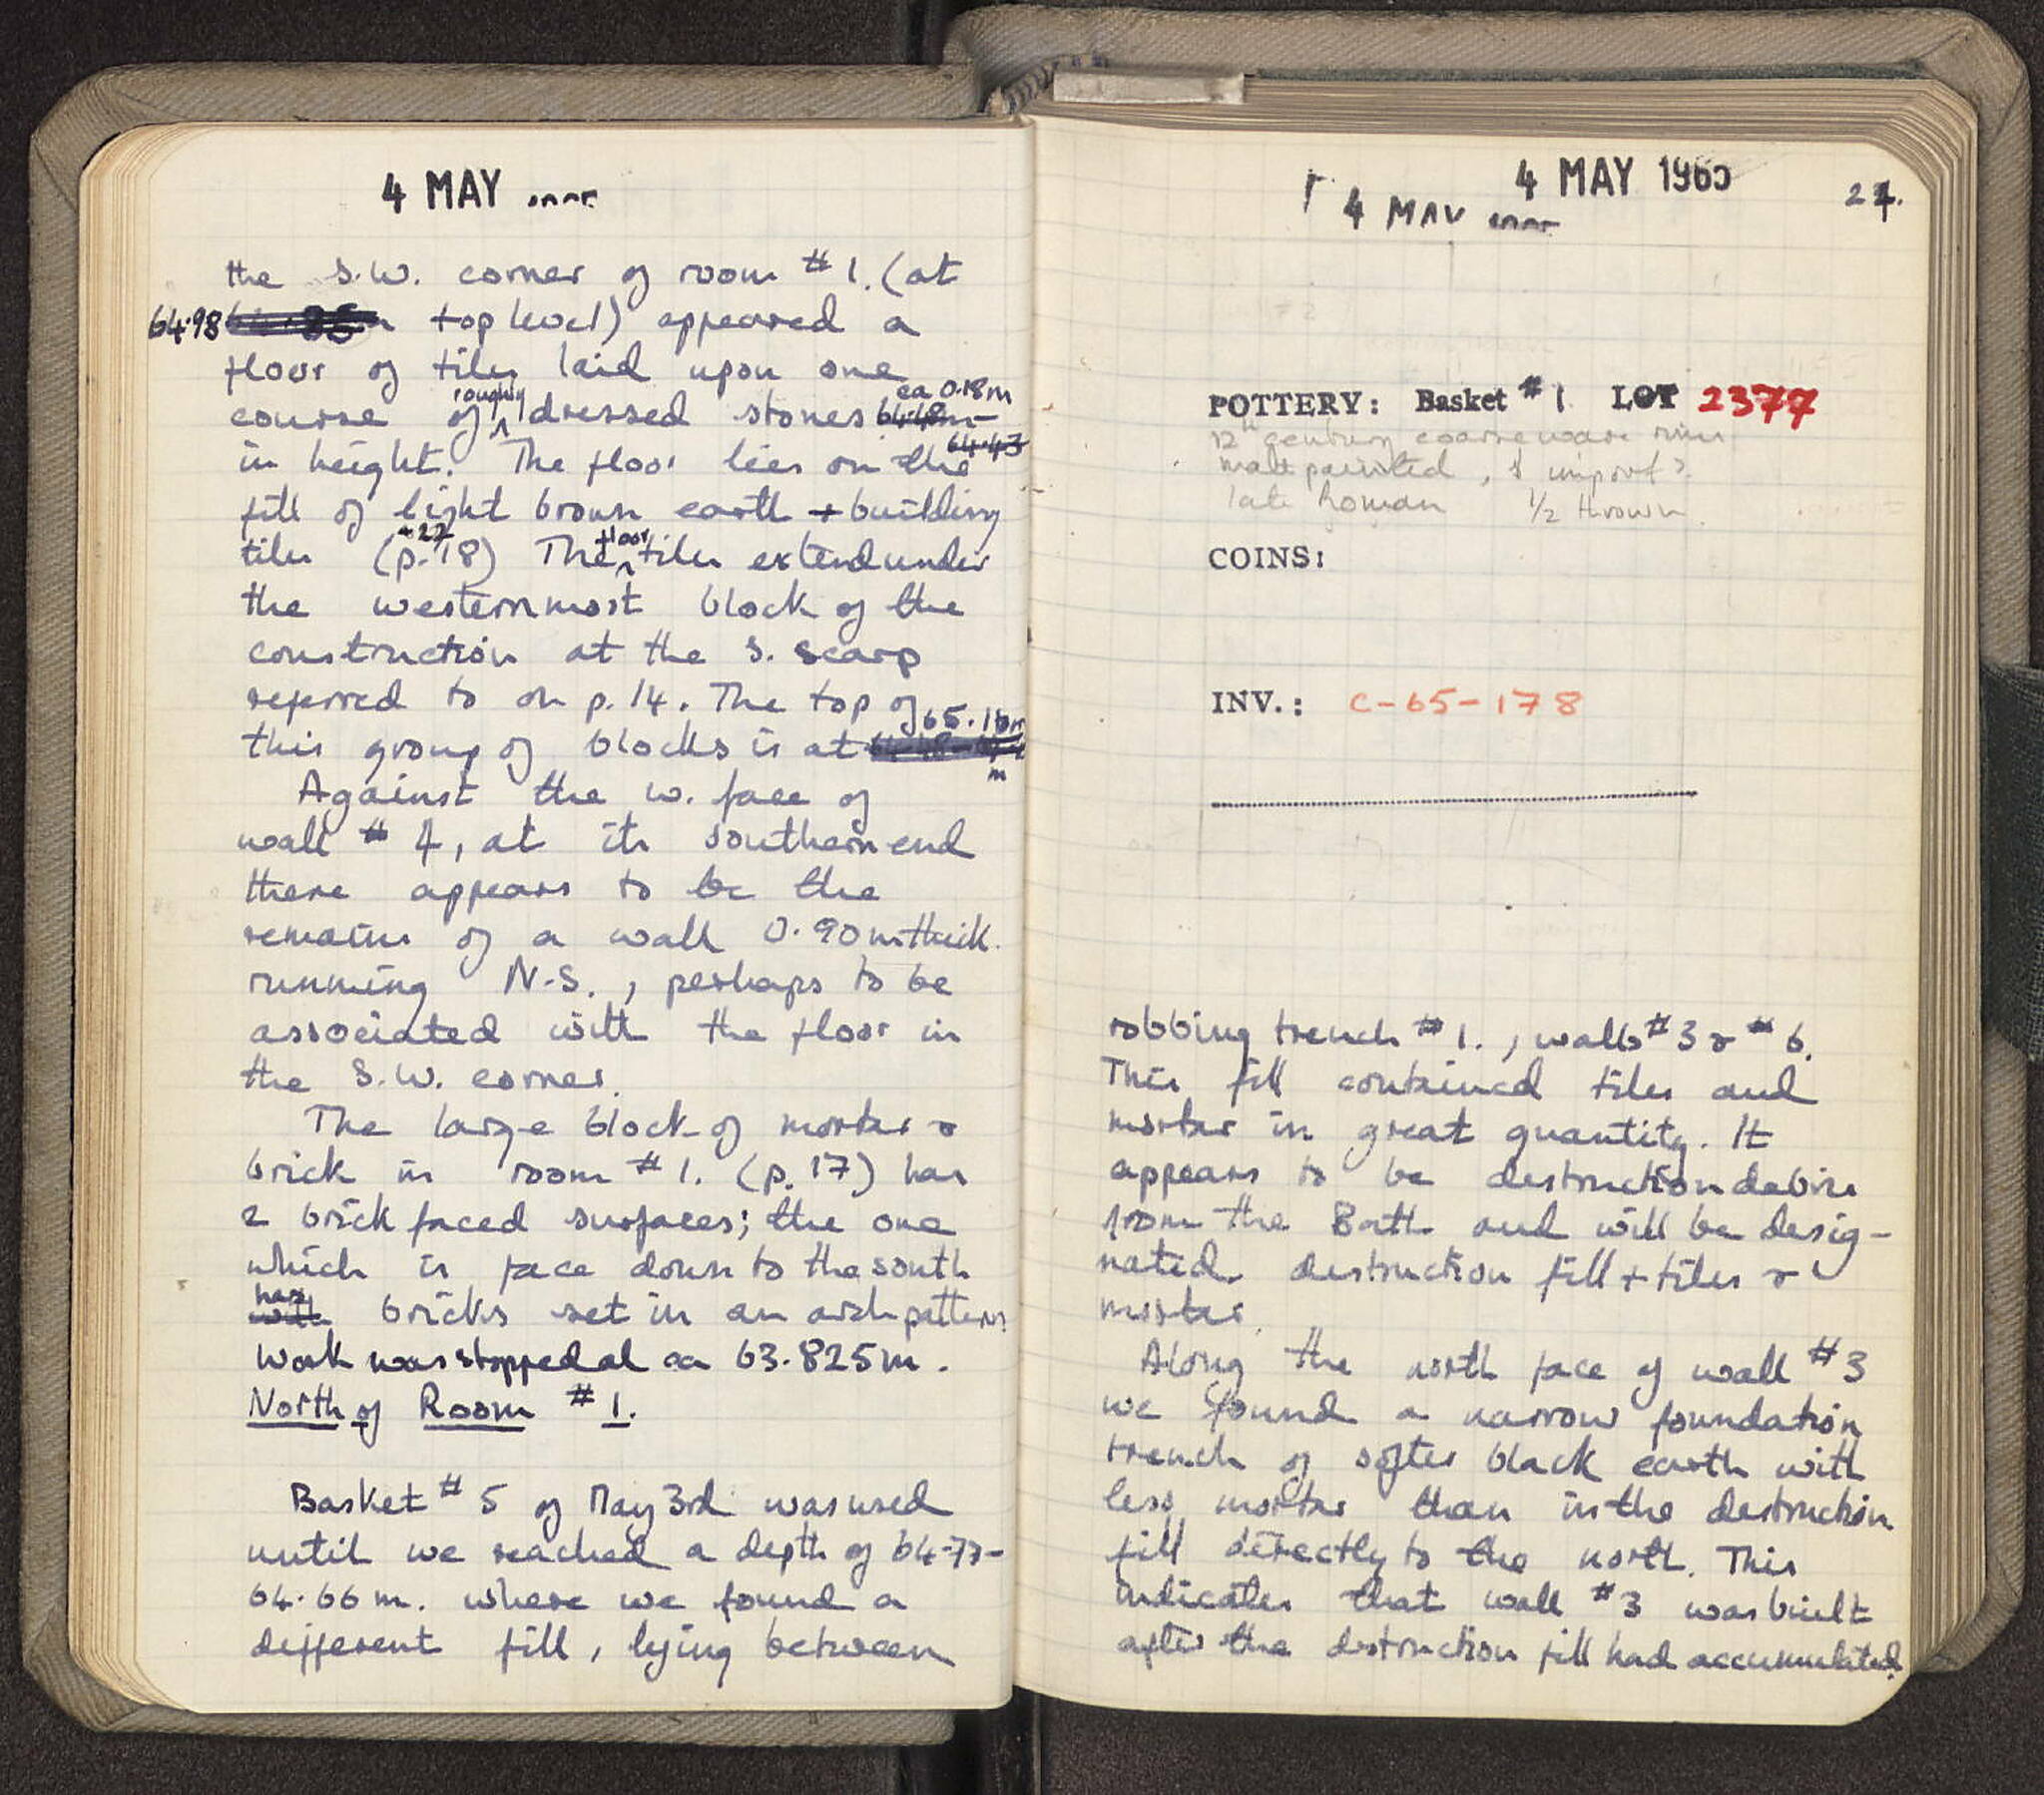 4 MAY
the S.W. corner of room #1. (at
64.98 top level) appeared a
floor of tiles laid upon one
course of roughly dressed stones ca 0.18m
64.48m-
64.43
in height. The floor lies on the
fill of light brown earth + building
tiles (p. 18 + 22) The floor tiles extend under
the westernmost block of the
construction at the S. scarp
referred to on p. 14. The top of
this group of blocks is at 65.10m
m
Against the w. face of
wall # 4, at its southern end
there appears to be the
remains of a wall 0.90m thick
running N-S., perhaps to be
associated with the floor in
the S.W. corner.
The large block of mortar &
brick in room #1. (p. 17) has
2 brick faced surfaces; the one
which is face down to the south
with has bricks set in an arch pattern
Work was stopped at ca 63.825m.
North of Room #1.
Basket #5 of May 3rd was used
until we reached a depth of 64.77-
64.66m. where we found a
different fill, lying between
4 MAY 1965
4 MAY
27.
POTTERY: Basket #1 LOT 2377
12th century coarse ware rims
matt painted, 1 import?
late Roman 1/2 thrown.
COINS:
INV.: C-65-178
robbing trench #1., walls #3 & #6.
This fill contained tiles and
mortar in great quantity. It
appears to be destruction debris
from the Bath and will be desig-
nated destruction fill + tiles &
mortar.
Along the north face of wall #3
we found a narrow foundation
trench of softer black earth with
less mortar than in the destruction
fill directly to the north. This
indicates that wall #3 was built
after the destruction fill had accumulated.